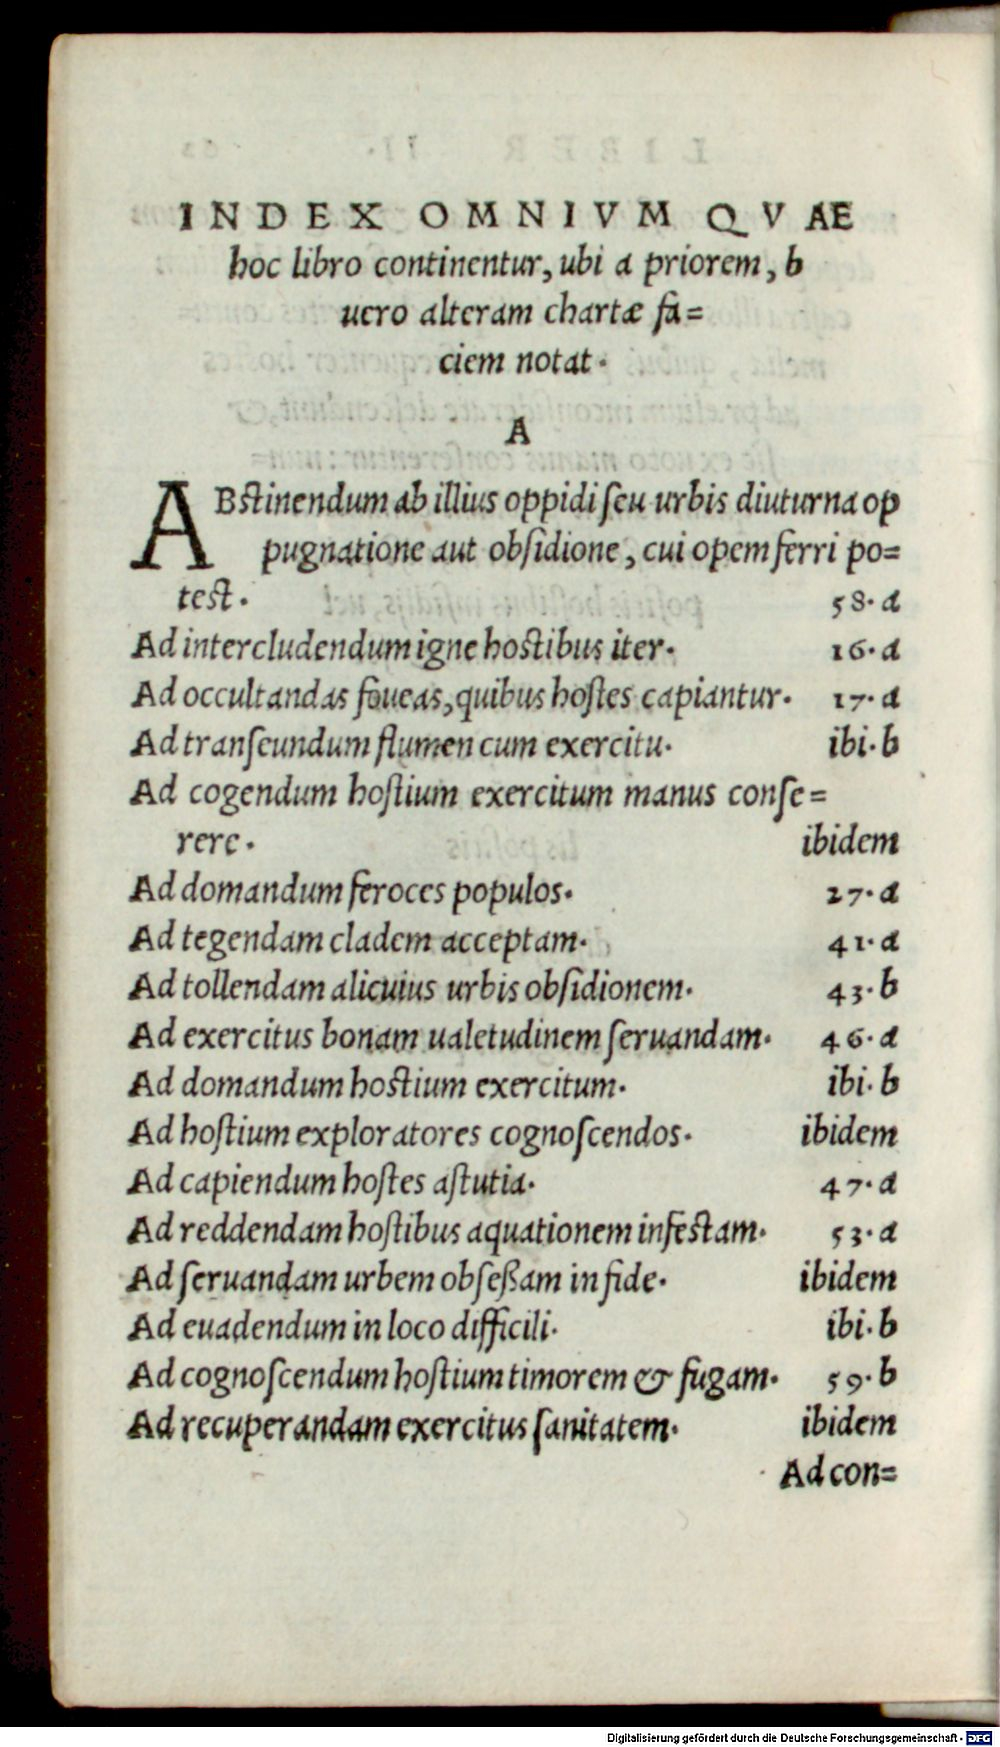 INDEX OMNIVM QVAE
hoc libro continentur, ubi a priorem, b
uero alteram chartæ fa=
ciem notat.
A
ABstinendum ab illius oppidi seu urbis diuturna op
pugnatione aut obsidione, cui opem ferri po=
test. 58. a
Ad intercludendum igne hostibus iter. 16. a
Ad occultandas foueas, quibus hostes capiantur. 17. a
Ad transeundum flumen cum exercitu. ibi. b
Ad cogendum hostium exercitum manus conse=
rere. ibidem
Ad domandum feroces populos. 27. a
Ad tegendam cladem acceptam. 41. a
Ad tollendam alicuius urbis obsidionem. 43. b
Ad exercitus bonam ualetudinem seruandam. 46. a
Ad domandum hostium exercitum. ibi. b
Ad hostium exploratores cognoscendos. ibidem
Ad capiendum hostes astutia. 47. a
Ad reddendam hostibus aquationem infestam. 53. a
Ad seruandam urbem obseßam in fide. ibidem
Ad euadendum in loco difficili. ibi. b
Ad cognoscendum hostium timorem & fugam. 59. b
Ad recuperandam exercitus sanitatem. ibidem
Ad con=
Digitalisierung gefördert durch die Deutsche Forschungsgemeinschaft - DFG